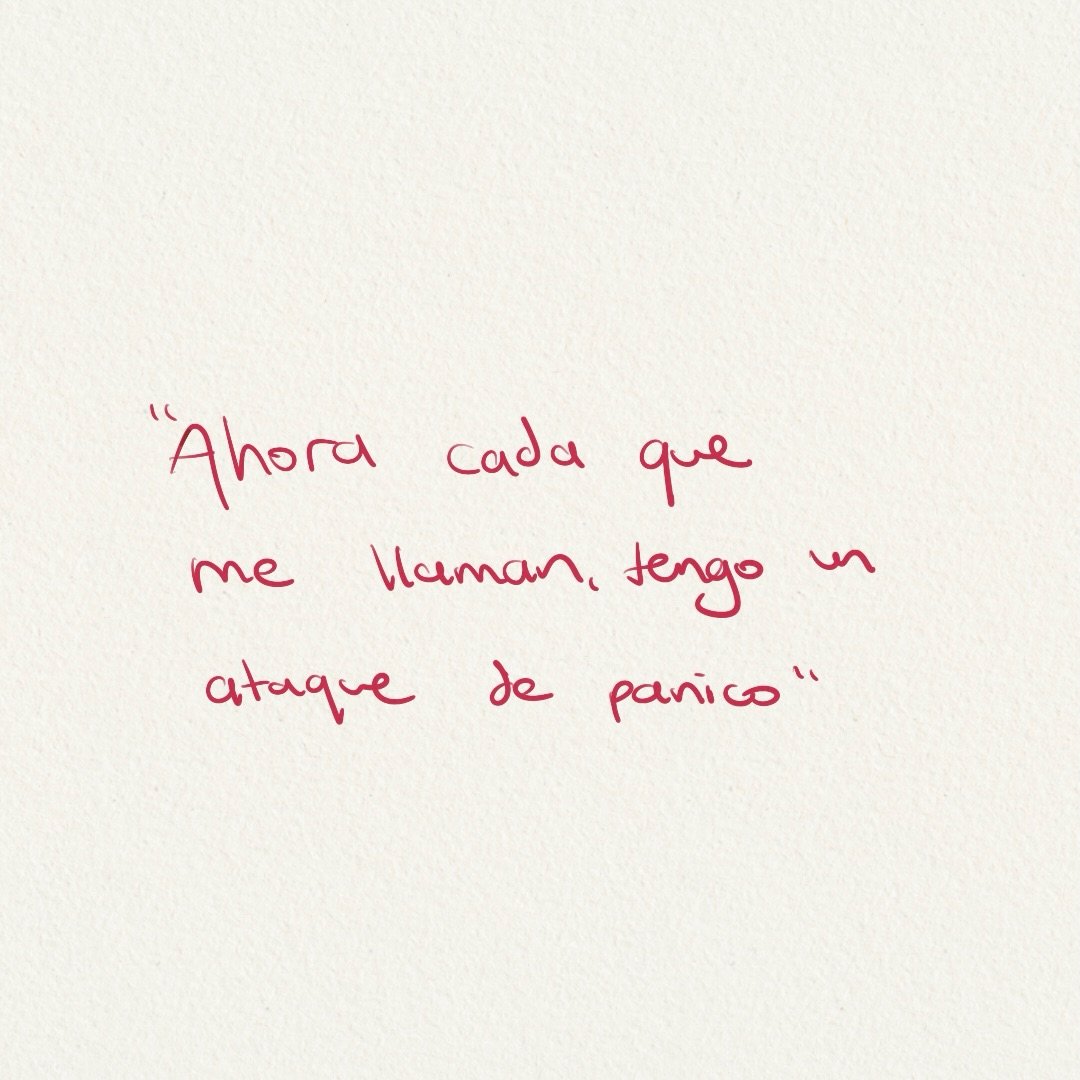 "Ahora cada que
me llaman, tengo un
ataque de panico"